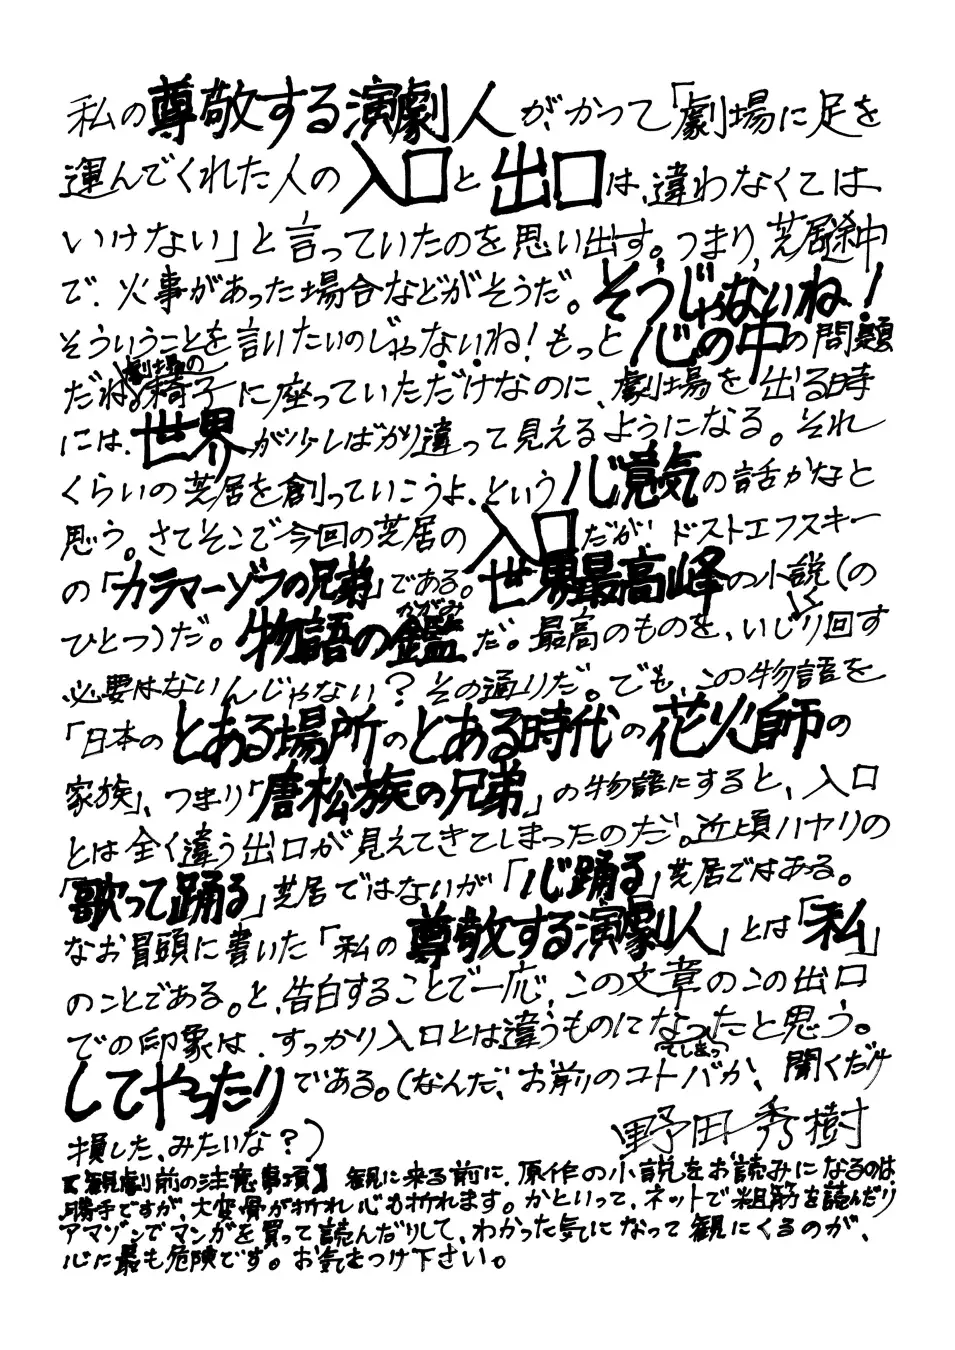 私の尊敬する演劇人が、かつて「劇場に足を
運んでくれた人の入口と出口は、違わなくては
いけない」と言っていたのを思い出す。つまり、芝居途中
で、火事があった場合などがそうだ。そうじゃないね!
そういうことを言いたいのじゃないね!もっと心の中の問題
だね。劇場の椅子に座っていただけなのに、劇場を出る時
には、世界が少しばかり違って見えるようになる。それ
くらいの芝居を創っていこうよ、という心意気の話かなと
思う。さてそこで今回の芝居の入口だが、ドストエフスキー
の「カラマーゾフの兄弟」である。世界最高峰の小説(の
ひとつ)だ。物語の鑑(かがみ)だ。最高のものを、いじくり回す
必要はないんじゃない?その通りだ。でも、この物語を
「日本のとある場所のとある時代の花火師の
家族」、つまり「唐松族の兄弟」の物語にすると、入口
とは全く違う出口が見えてきてしまったのだ。近頃ハヤリの
「歌って踊る」芝居ではないが「心踊る」芝居ではある。
なお冒頭に書いた「私の尊敬する演劇人」とは「私」
のことである。と、告白することで一応、この文章のこの出口
での印象は、すっかり入口とは違うものになってしまったと思う。
してやったりである。(なんだ、お前のコトバか、聞くだけ
損した、みたいな?)
野田秀樹
【観劇前の注意事項】観に来る前に、原作の小説をお読みになるのは、
勝手ですが、大変骨が折れ心も折れます。かといって、ネットで粗筋を読んだり
アマゾンでマンガを買って読んだりして、わかった気になって観にくるのが、
心に最も危険です。お気をつけ下さい。